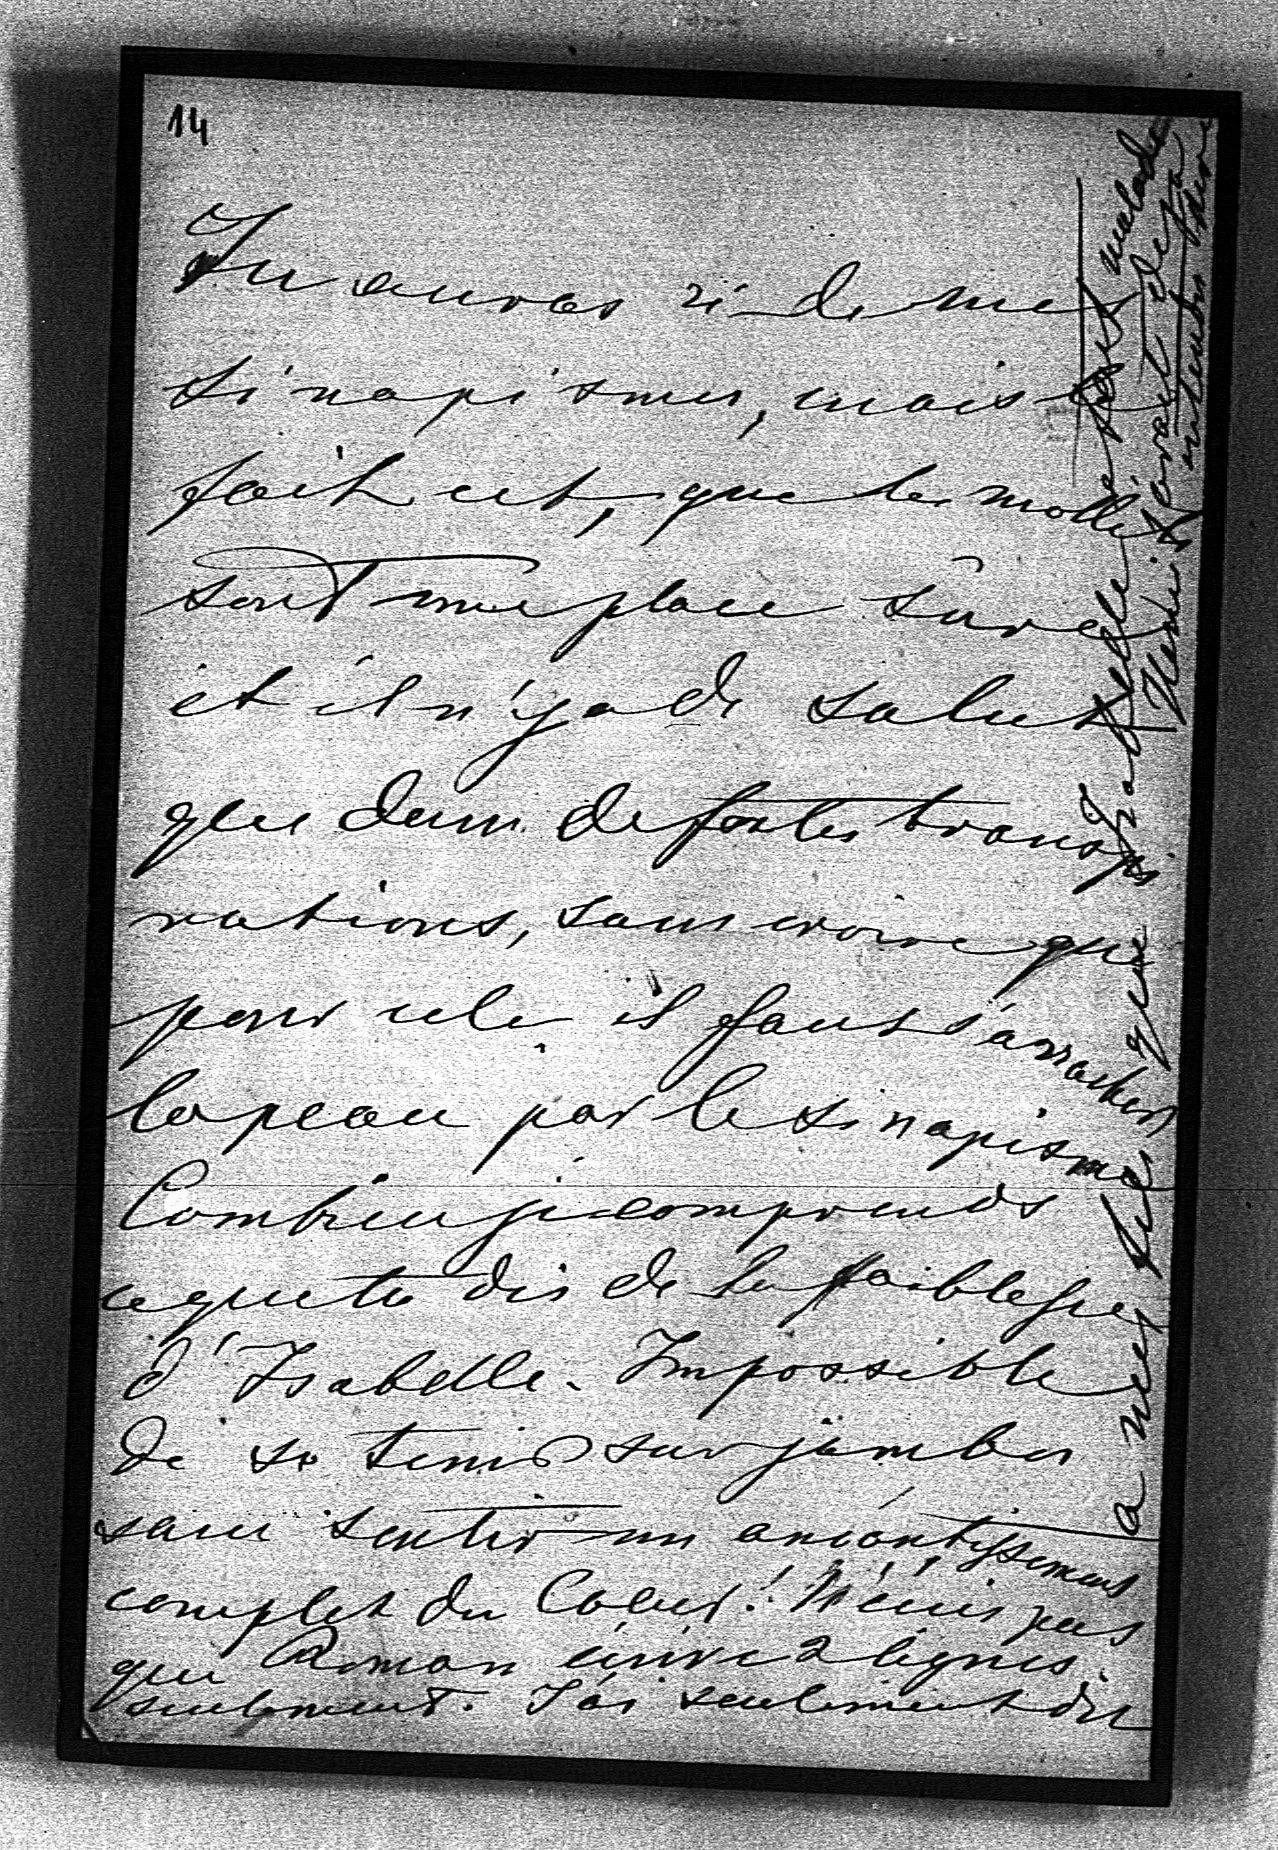 14
Tu auras ri de mes
sinapismes, mais le
fait est, que les mollets
sont une place sûre
et il n'y a de salut
que dans de fortes transpi
rations, sans croire que
pour cela il faut s'arracher
la peau par le sinapisme
Combien je comprends
ce que tu dis de la faiblesse
d'Isabelle. Impossible
de se tenir sur jambes
sans sentir un anéantissement
complet du Coeur! N'écris pas
que Roman écrive 2 lignes
seulement. J'ai seulement dit
a mes fils que Isabelle est malade
avait déjà